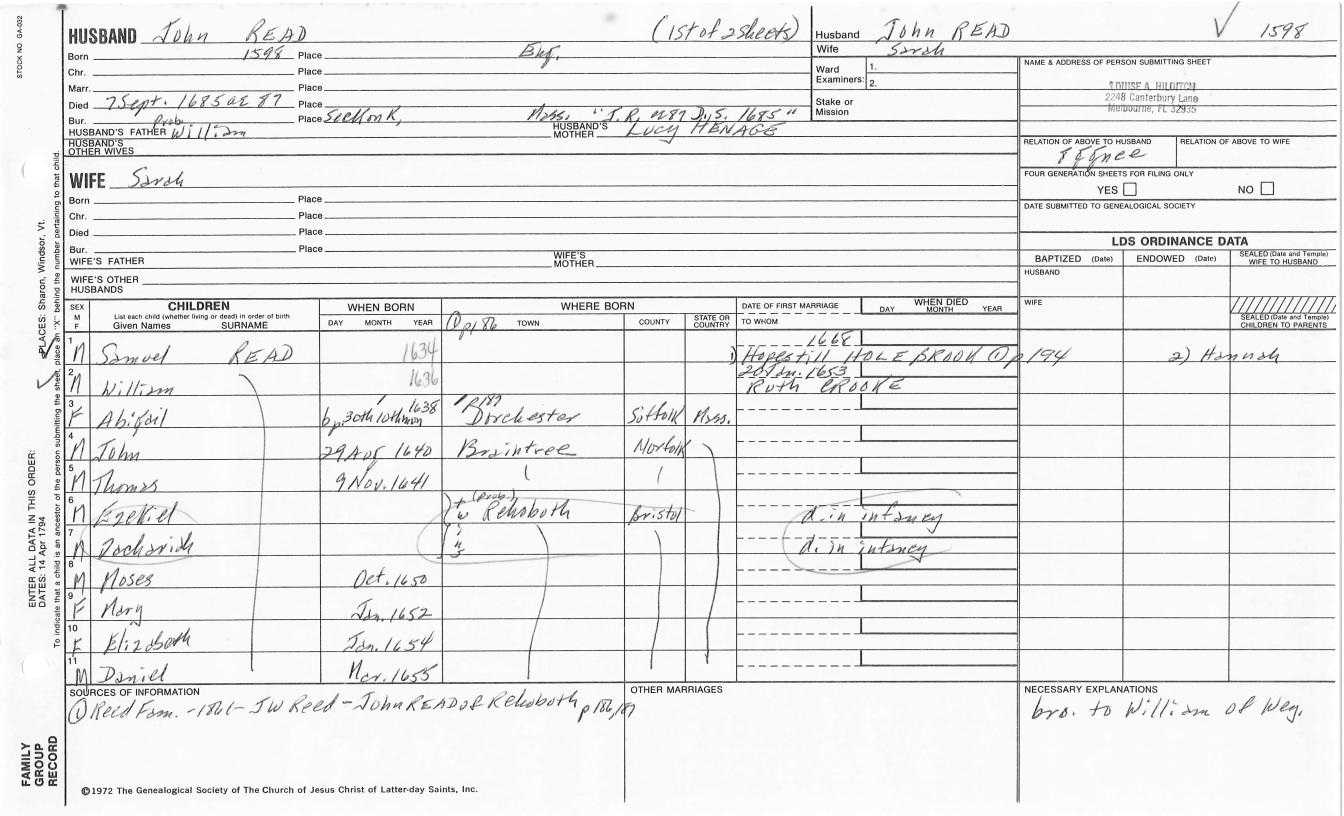 STOCK NO. GA-032
HUSBAND John READ (1st of 2 sheets)
Born 1598 Place Eng.
Chr. Place
Marr. Place
Died 7 Sept. 1685 ae 87 Place
Bur. Place Seekonk, Mass. "I.R. ae 87 D.,S. 1685"
HUSBAND'S FATHER Prob. William HUSBAND'S MOTHER Lucy HENAGE
HUSBAND'S OTHER WIVES
Husband John READ
Wife Sarah
✓ 1598
Ward Examiners: 1.
2.
Stake or Mission
NAME & ADDRESS OF PERSON SUBMITTING SHEET
LOUISE A. HILDITCH
2248 Canterbury Lane
Melbourne, FL 32935
RELATION OF ABOVE TO HUSBAND RELATION OF ABOVE TO WIFE
FOUR GENERATION SHEETS FOR FILING ONLY
YES NO
DATE SUBMITTED TO GENEALOGICAL SOCIETY
WIFE Sarah
Born Place
Chr. Place
Died Place
Bur. Place
WIFE'S FATHER WIFE'S MOTHER
WIFE'S OTHER HUSBANDS
LDS ORDINANCE DATA
BAPTIZED (Date) ENDOWED (Date) SEALED (Date and Temple) WIFE TO HUSBAND
HUSBAND
WIFE
SEALED (Date and Temple) CHILDREN TO PARENTS
SEX M F CHILDREN
List each child (whether living or dead) in order of birth
Given Names SURNAME
WHEN BORN DAY MONTH YEAR
WHERE BORN TOWN COUNTY STATE OR COUNTRY
① p186
DATE OF FIRST MARRIAGE TO WHOM
WHEN DIED DAY MONTH YEAR
1 M Samuel READ 1634 1668
1) Hopestill HOLEBROOK ① p194 2) Hannah
2 M William 1636 20 Jan. 1653
Ruth CROOKE
3 F Abigail bp. 30th 10th mon 1638 p187 Dorchester Suffolk Mass.
4 M John 29 Aug 1640 Braintree Norfolk
5 M Thomas 9 Nov. 1641
6 M Ezekiel twins (prob.) Rehoboth Bristol d. in infancy
7 M Zachariah d. in infancy
8 M Moses Oct. 1650
9 F Mary Jan. 1652
10 F Elizabeth Jan. 1654
11 M Daniel Mar. 1655
SOURCES OF INFORMATION
① Reed Fam. - 1861 - JW Reed - John READ of Rehoboth p186,187
OTHER MARRIAGES
NECESSARY EXPLANATIONS
bro. to William of Wey.
©1972 The Genealogical Society of The Church of Jesus Christ of Latter-day Saints, Inc.
FAMILY GROUP RECORD
ENTER ALL DATA IN THIS ORDER:
DATES: 14 Apr 1794
PLACES: Sharon, Windsor, Vt.
To indicate that a child is an ancestor of the person submitting the sheet, place an "X" behind the number pertaining to that child.